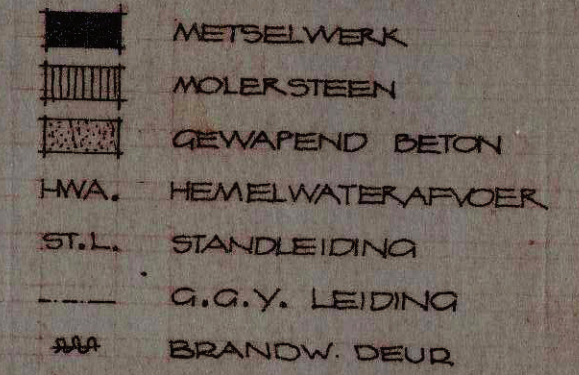 METSELWERK
MOLERSTEEN
GEWAPEND BETON
HWA. HEMELWATERAFVOER
ST.L. STANDLEIDING
G.G.Y. LEIDING
BRANDW. DEUR